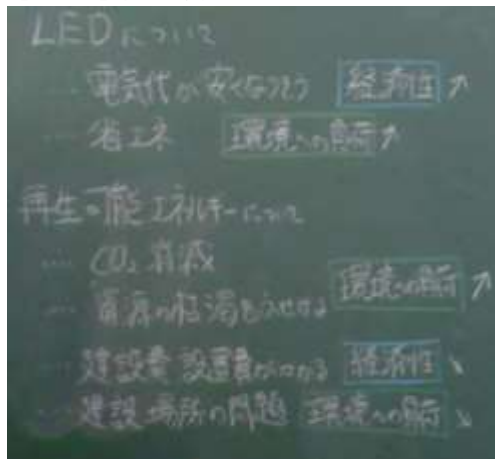 LEDについて
… 電気代が安くなりそう 経済性 ↗
… 省エネ 環境への負荷 ↗
再生可能エネルギーについて
… CO₂ 削減
… 資源の枯渇を 環境への負荷 ↗
… 建設費 設置費がかかる 経済性 ↘
… 建設場所の問題 環境への負荷 ↘